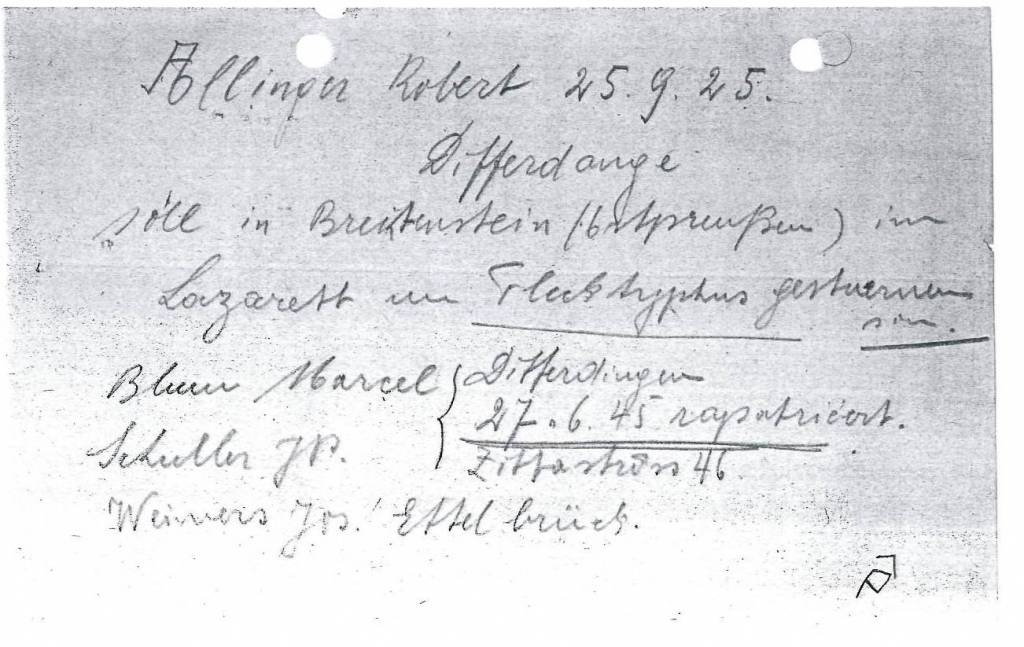 Ollinger Robert 25.9.25.
Differdange
soll in Breitenstein (Ostpreußen) im
Lazarett an Flecktyphus gestuerwen
sin.
Blum Marcel { Differdingen
27.6.45 rapatriéert.
Schuller JP. 46.
Weimers Jos. Ettelbrück.